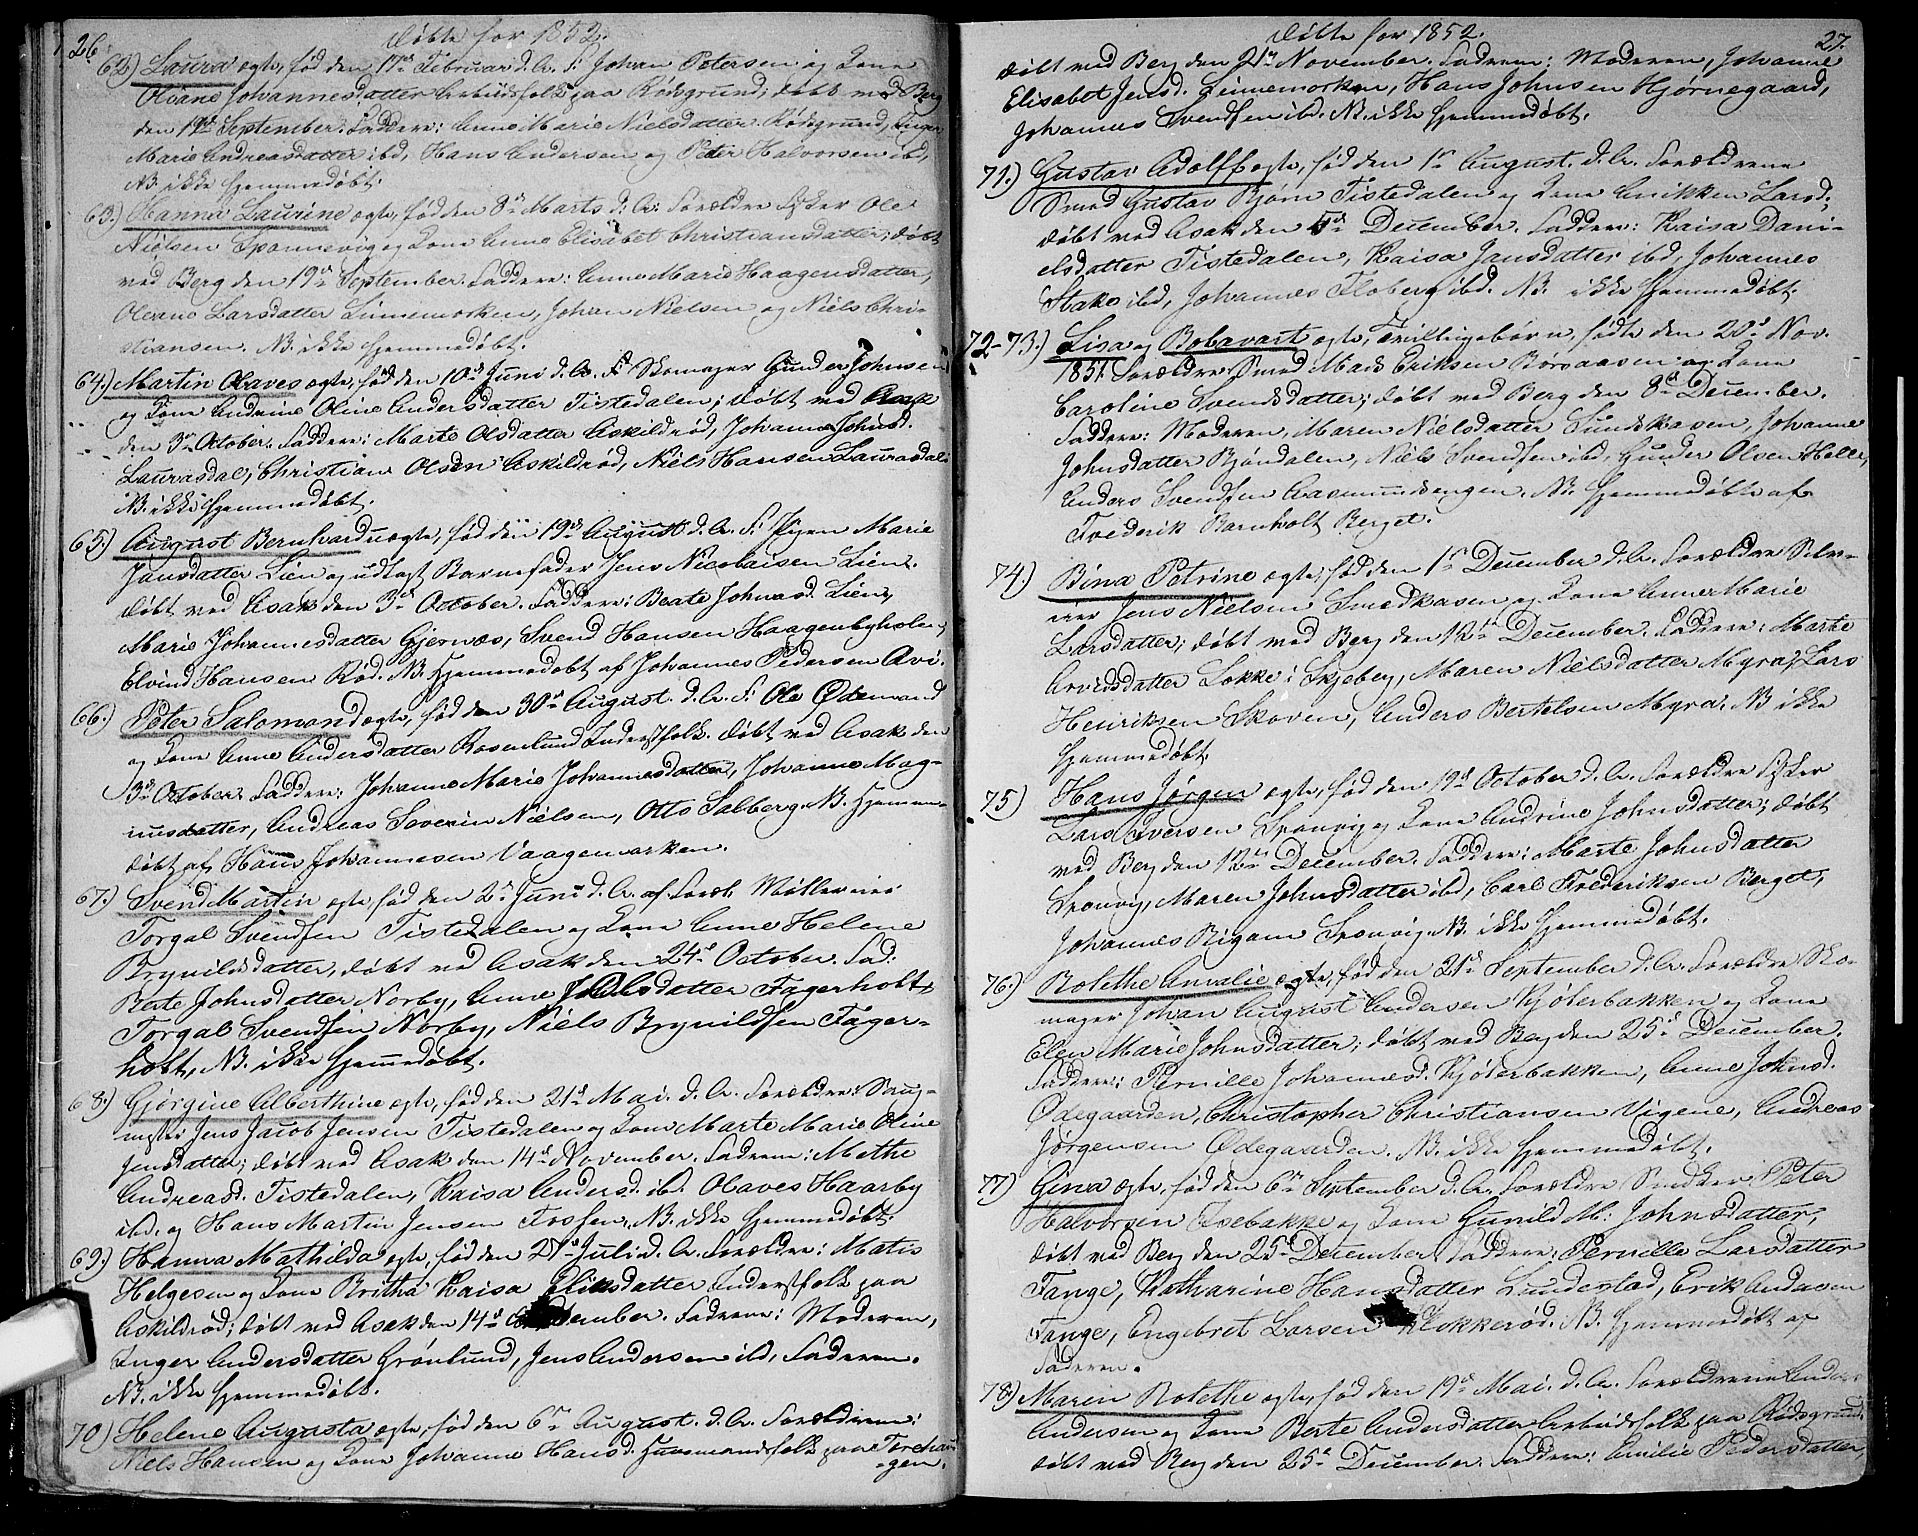 26.
Döbte for 1852.
62) Laura ægte, fød den 17de Februar d. A. F: Johan Petersen og Kone
Oliane Johannesdatter Arbeidsfolk paa Rødsgrund; døbt ved Berg
den 19de September. Faddere: Anne Marie Nielsdatter Rødsgrund, Inger
Marie Andreasdatter ibd, Hans Andersen og Peter Halvorsen ibd,
NB. ikke hjemmedøbt.
63.) Hanna Laurine ægte, fød den 8de Marts d. A. Forældre Fisker Ole
Nielsen Sponnevig og Kone Anne Elisabet Christiansdatter; døbt
ved Berg den 19de September. Faddere: Anne Marie Haagensdatter,
Oleane Larsdatter Linnemorken, Johan Nielsen og Niels Chri-
stiansen. NB. ikke hjemmedøbt.
64.) Martin Olaves ægte, fød den 10de Juni d. A. F: Skomager Gunder Johnsen
og Kone Andrine Oline Andersdatter Tistedalen; døbt ved Asak
den 3die October. Faddere: Marte Olsdatter Askildrød, Johanne Johnsd.
Laurasdal, Christian Olsen Askildrød, Niels Hansen Laurasdal
NB. ikke hjemmedøbt.
65.) August Bernhard uægte, fød den 19de August d. A. F: Pigen Marie
Jansdatter Lien og udlagt Barnefader Jens Nicolaisen Lien.
døbt ved Asak den 3die October. Faddere: Beate Johnsd. Lien,
Marie Johannesdatter Gjernæs, Svend Hansen Haagenbyholen,
Elvind Hansen Rød. NB. Hjemmedøbt af Johannes Pedersen Qvi.
66.) Peter Salomon ægte, fød den 30de August. d. A. F: Ole Ødemand
og Kone Anne Andersdatter Rosenlund Inderstfolk. døbt ved Asak den
3die October. Faddere: Johanne Marie Johannesdatter, Johanne Mag-
nusdatter, Andreas Severin Nielsen, Otto Solberg. NB. Hjemme-
døbt af Hans Johannesen Vaagemarken.
67.) Svend Martin ægte, fød den 2den Juni d. A. af Foræl. Møllersvend
Torgal Svendsen Tistedalen og Kone Anne Helene
Brynildsdatter, døbt ved Asak den 24de October. Fad:
Berte Johnsdatter Norby, Anne Olsdatter Fagerholt,
Torgal Svendsen Norby, Niels Brynildsen Fager-
holt, NB. ikke hjemmedøbt.
68.) Gjørgine Alberthine ægte, fød den 21de Mai. d. A. Forældre: Saug-
mester Jens Jacob Jensen Tistedalen og Kone Marte Marie Oline
Jensdatter; døbt ved Asak den 14de November. Faddere: Methe
Andreasd. Tistedalen, Kaisa Andersd. ibd. Olaves Haarby
ibd. og Hans Martin Jensen Fosses. NB. ikke hjemmedøbt.
69.) Hanna Mathilda ægte, fød den 27de Juli d. A. Forældre: Matis
Helgesen og Kone Britha Kaisa Eliasdatter Inderstfolk paa
Askildrød; døbt ved Asak den 14de November. Faddere: Moderen,
Inger Andersdatter Grønlund, Jens Andersen ibd, Faderen.
NB. ikke hjemmedøbt.
70) Helene Augusta ægte, fød den 6te August. d. A. Forældrene:
Niels Hansen og Kone Johanne Hansd. Huusmandsfolk paa Torehau-
gen.
27.
Döbte for 1852.
døbt ved Berg den 21de November. Faddere: Moderen, Johanne
Elisabet Jensd. Linnemorken, Hans Johnsen Hjørnegaard,
Johannes Svendsen ibd. NB. ikke hjemmedøbt.
71.) Gustav Adolff ægte, fød den 1ste August. d. A. Forældrene
Smed Gustav Bjørn Tistedalen og Kone Anikken Larsd.
døbt ved Asak den 5te December. Faddere: Kaisa Dani-
elsdatter Tistedalen, Kaisa Jansdatter ibd, Johannes
Stake ibd, Johannes Floberg ibd. NB. ikke hjemmedøbt.
72-73.) Lisa og Bobavart ægte, Tvillingebørn, fødte den 20de Nov.
1851. Forældre Smed Mads Eriksen Børaasen og Kone
Caroline Svendsdatter; døbt ved Berg den 8de December.
Faddere: Moderen, Maren Nielsdatter Sundskasen, Johanne
Johnsdatter Bjøndalen, Niels Svendsen ibd, Gunder Olsen Helle,
Anders Svendsen Aasmundsengen. NB. hjemmedøbte af
Frederik Barnholt Berget.
74.) Bina Petrine ægte, fød den 1ste December d. A. Forældre Selv-
eier Jens Nielsen Smedkasen og Kone Anne Marie
Larsdatter; døbt ved Berg den 12te December. Faddere: Marte
Arvesdatter Løkke i Skjeberg, Maren Nielsdatter Myra, Lars
Henriksen Skoven, Anders Bertelsen Myra. NB ikke
hjemmedøbt.
75) Hans Jørgen ægte, fød den 19de October d. A. Forældre Fisker
Lars Iversen Sponvig og Kone Andrine Johnsdatter; døbt
ved Berg den 12te December. Faddere: Marte Johnsdatter
Sponvig, Maren Johnsdatter ibd, Carl Frederiksen Berget,
Johannes Bigum Sponvig. NB. ikke hjemmedøbt.
76.) Bolethe Amalie ægte, fød den 21de September d. A. Forældre Sko-
mager Johan August Andersen Kjøterbakken og Kone
Elen Marie Johnsdatter; døbt ved Berg den 25de December.
Faddere: Pernille Johannesd. Kjøterbakken, Anne Johnsd.
Ødegaarden, Christopher Christiansen Vigene, Andreas
Jørgensen Ødegaarden. NB. ikke hjemmedøbt.
77) Gina ægte, fød den 6te September d. A. Forældre Snedker Peter
Halvorsen Isebakke og Kone Gunild M: Johnsdatter,
døbt ved Berg den 25de December. Faddere: Pernille Larsdatter
Tange, Katharine Hansdatter Lunderstad, Erik Andersen
Tange, Engebret Larsen Klokkerød. NB. hjemmedøbt af
Faderen.
78) Maren Bolethe ægte, fød den 19de Mai. d. A. Forældrene Anders
Andersen og Kone Berte Andersdatter Arbeidsfolk paa Rødsgrund.
døbt ved Berg den 25de December. Faddere: Emilie Pedersdatter,